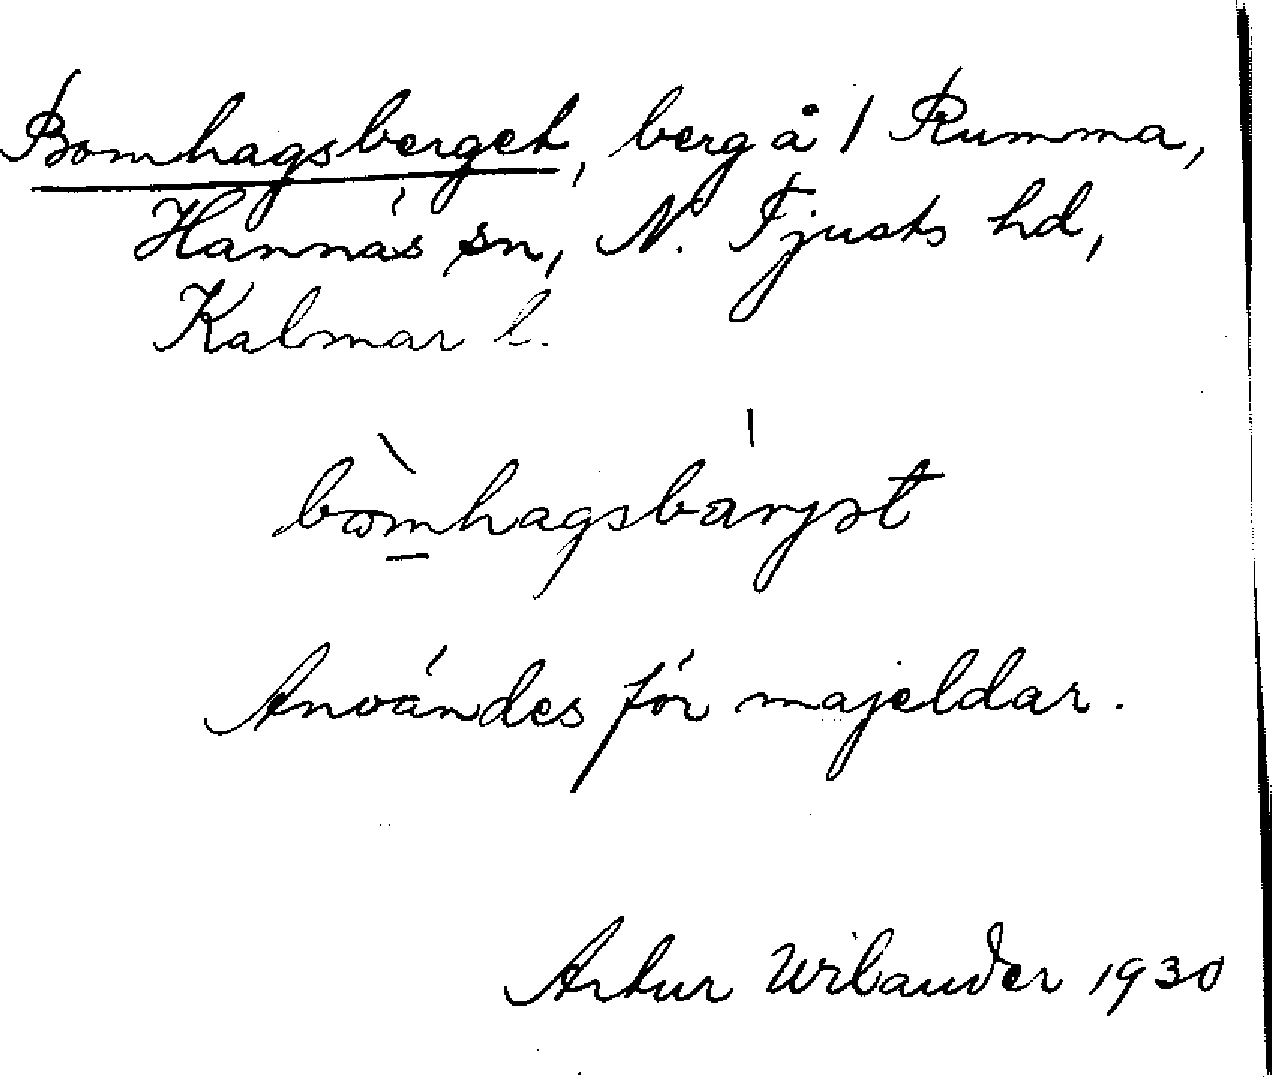 Bomhagsberget, berg å 1 Rumma,
Hannäs sn, N. Tjusts hd,
Kalmar l.
bòmhagsbärjət
Användes för majeldar.
Artur Wilander 1930